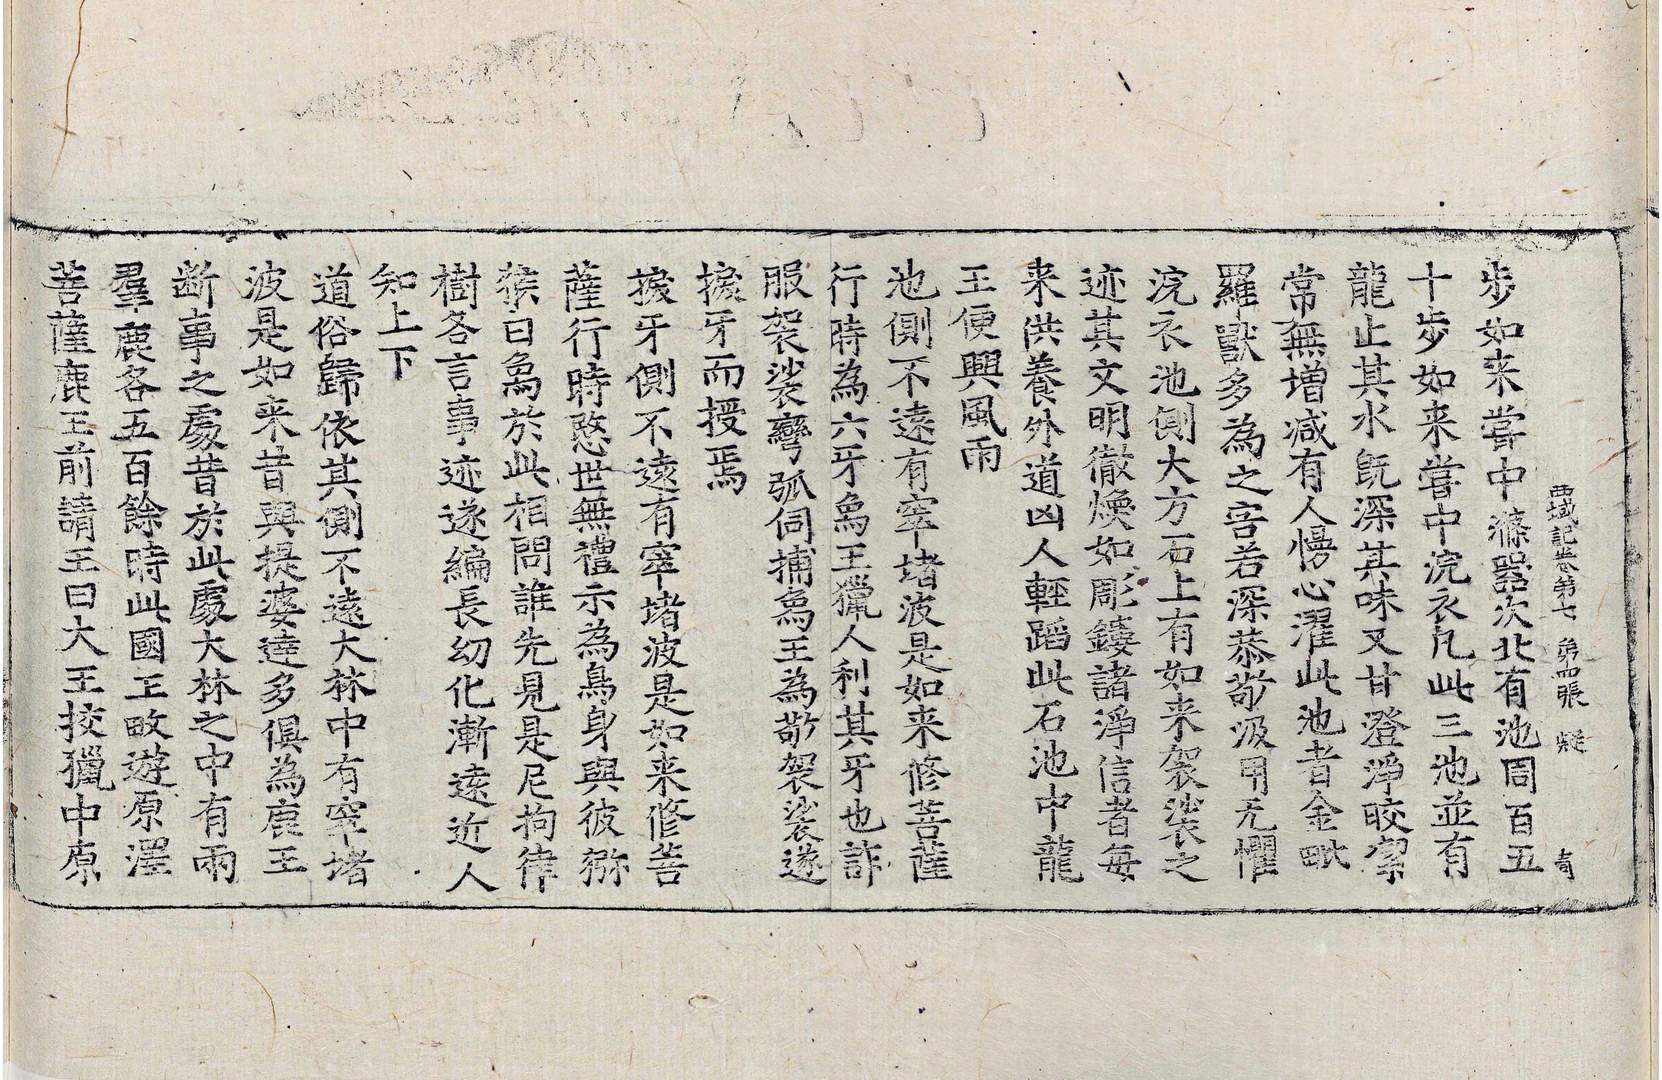 西域記卷第七 第四張 凝 育
步如来嘗中滌器次北有池周百五
十步如来嘗中浣衣凡此三池並有
龍止其水旣深其味又甘澄淨皎潔
常無增減有人慢心濯此池者金毗
羅獸多為之害若深恭敬汲用无懼
浣衣池側大方石上有如来袈裟之
迹其文明徹煥如彫鏤諸淨信者每
来供養外道凶人輕蹈此石池中龍
王便興風雨
池側不遠有窣堵波是如来修菩薩
行時為六牙象王獵人利其牙也詐
服袈裟彎弧伺捕象王為敬袈裟遂
捩牙而授焉
捩牙側不遠有窣堵波是如来修菩
薩行時愍世無禮示為鳥身與彼獼
猴白象於此相問誰先見是尼拘律
樹各言事迹遂編長幼化漸遠近人
知上下
道俗歸依其側不遠大林中有窣堵
波是如来昔與提婆達多俱為鹿王
断事之處昔於此處大林之中有兩
羣鹿各五百餘時此國王畋遊原澤
菩薩鹿王前請王曰大王挍獵中原